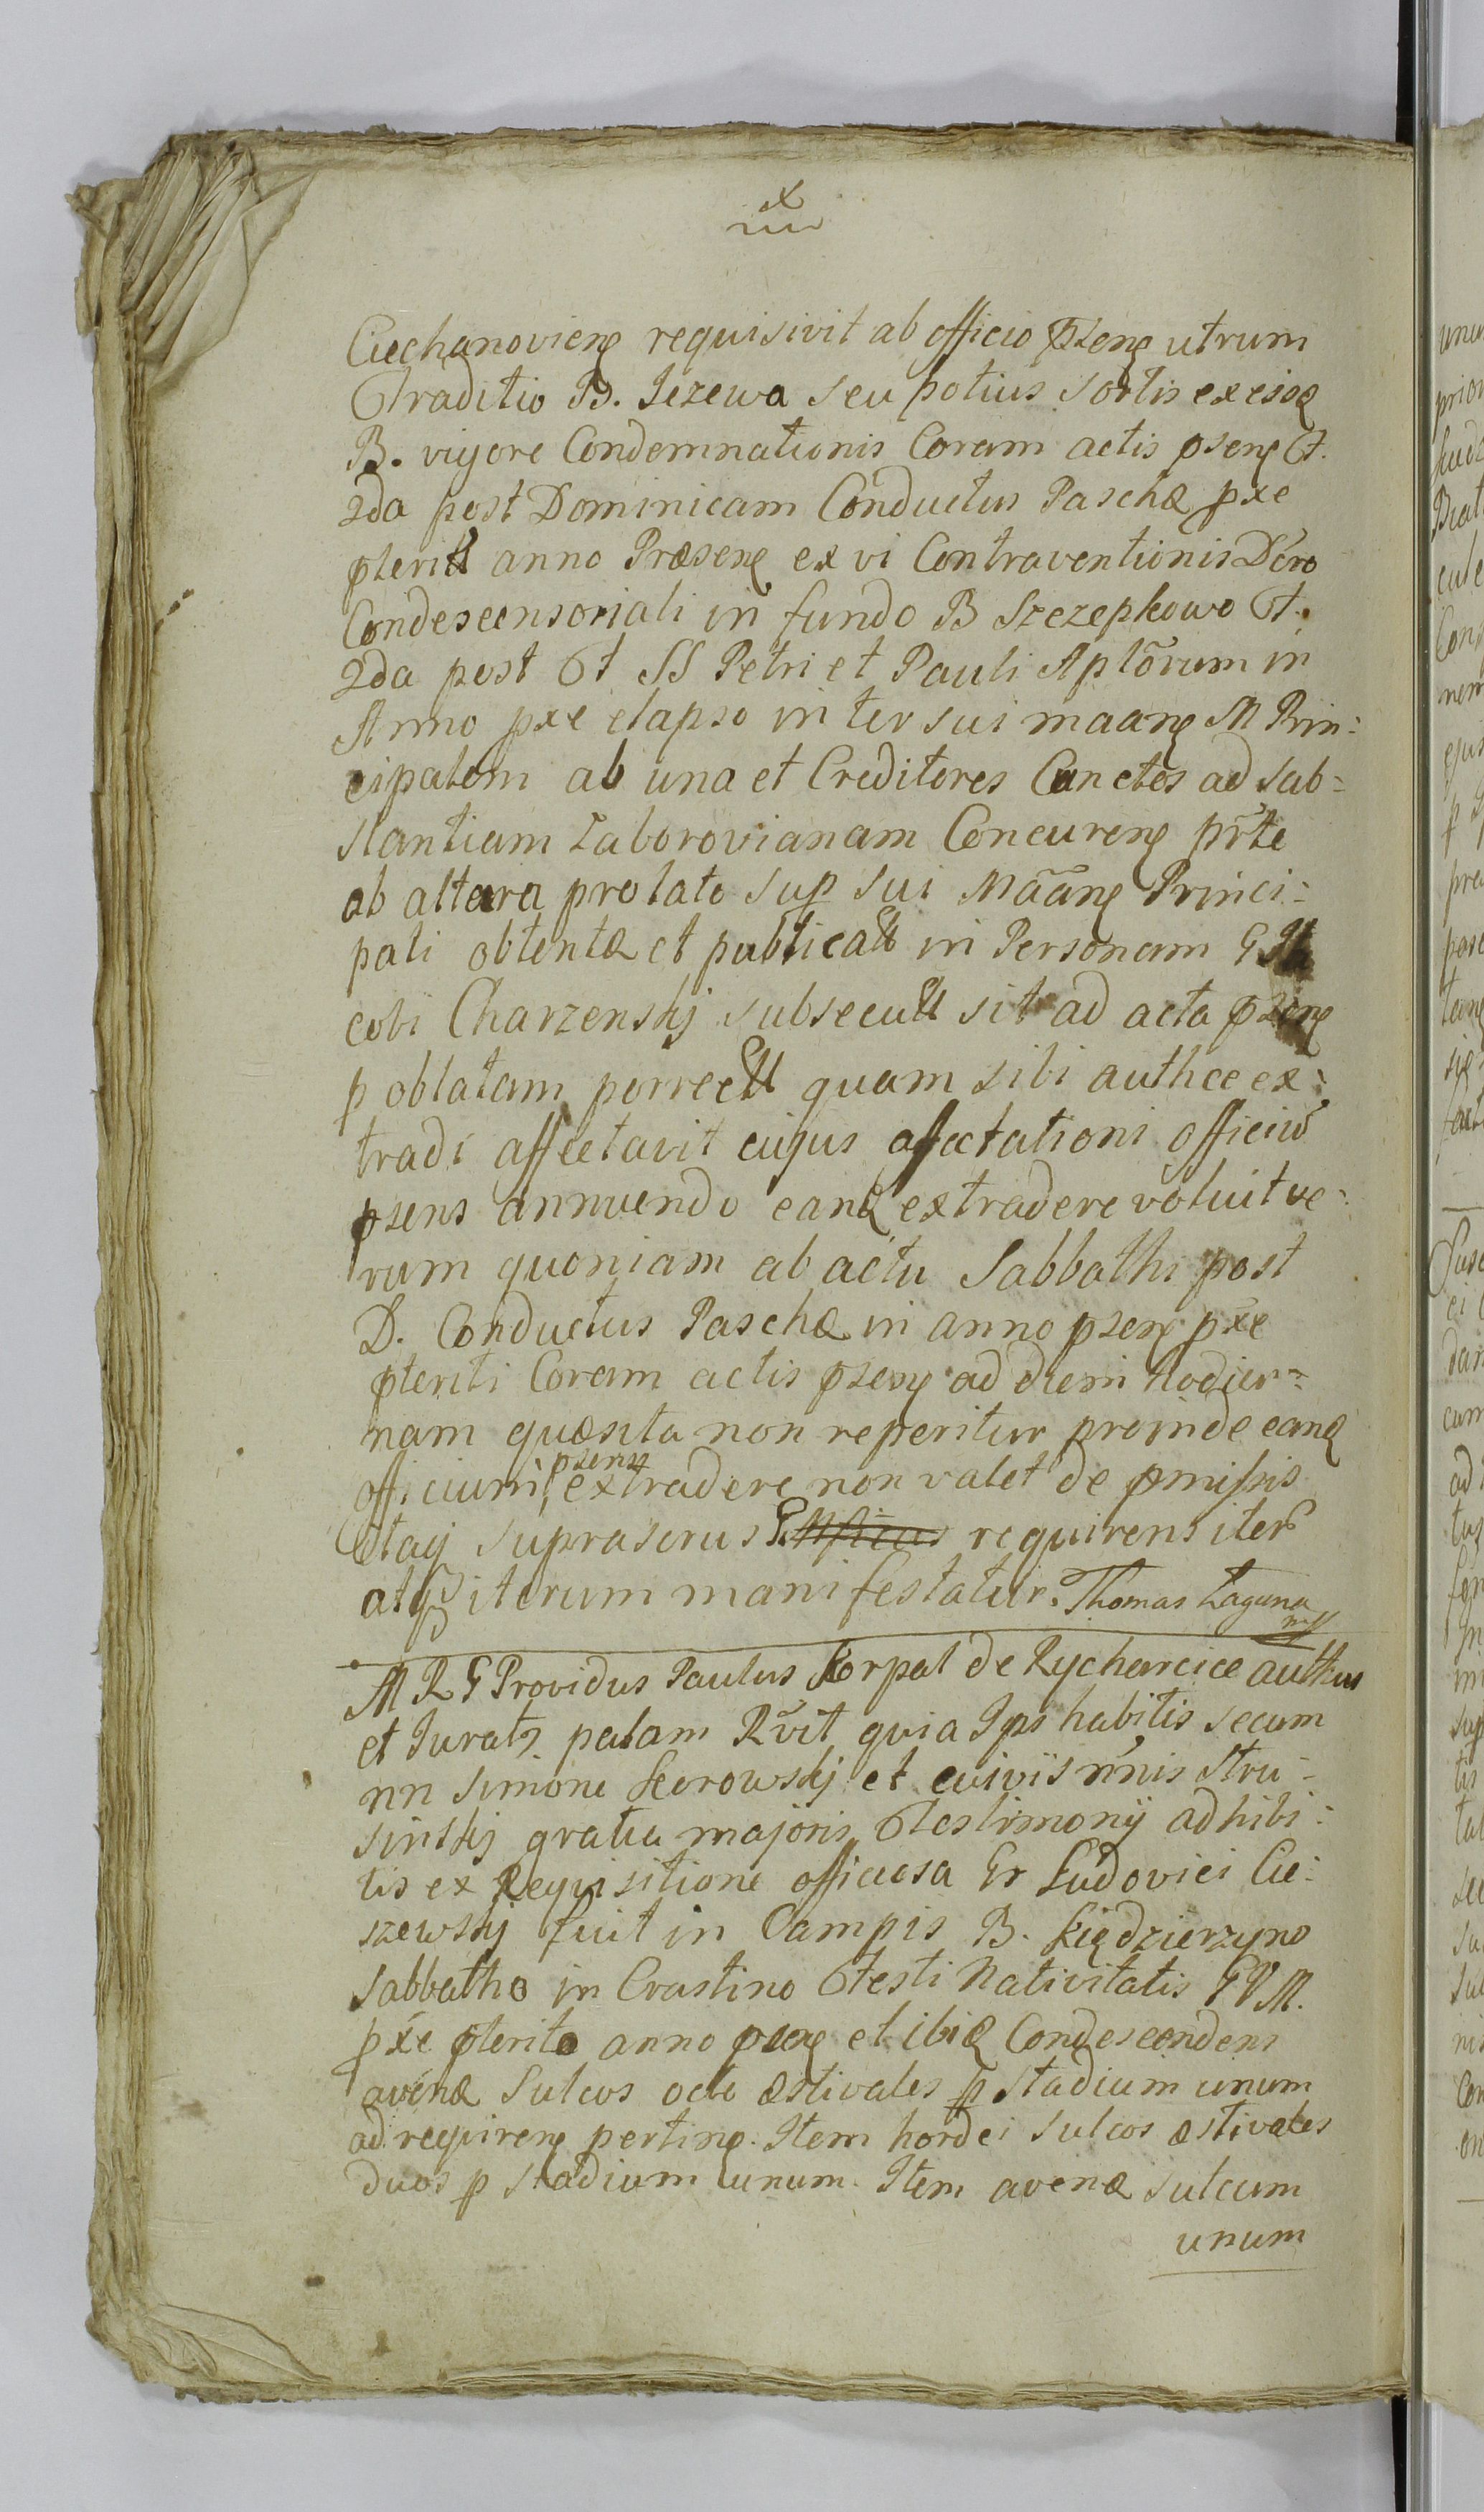 Ciechanoviens requisivit ab officio pzens utrum
Traditio B. Jezewa seu potius sortis ex eisd
B. vigore Condemnationis Coram actis psens F.
2da post Dominicam Conductus Paschæ pxe
pterit anno Præsens ex vi Contraventionis Dcro
Condescensoriali in fundo B Szczepkowo F.
2da post F SS Petri et Pauli Aplorum in
Anno pxe elapso inter sui maans M Prin:
cipalem ab una et Creditores Cunctos ad sub=
stantiam Zaborovianam Concurens prte
ab altera prolato sup sui Maans Princi:
pali obtentæ et publicatt in Personam G Ja
cobi Charzenskj subsecutt sit ad acta pzens
p oblatam porrectt quam sibi authce ex:
tradi affectavit cujus afectationi officiu
pzens annuendo eand extradere voluit ve:
rum quoniam ab actu Sabbathi post
D. Conductus Paschæ in anno pzens pxe
pteriti Coram actis pzens ad diem hodier=
nam quæsita non reperitur proinde eand
officium psens extradere non valet de pmissis
itaq suprascrus G. requirens iter
atq iterum manifestatur. Thomas Laguna
mp
M R G Providus Paulus Korpal de Rycharcice authus
et Jurat palam Rvit quia Ips habitis secum
nn Simone Secrowskj et cuivis nnis Stru-
sinskj gratia majoris Testimonij adhibi:
tis ex Requisitione officiosa Gr Ludovici Cie:
szewskj fuit in Campis B. Kiędzierzyno
Sabbatho in Crastino Festi Nativitatis BVM.
pxe pterito anno pzens et ibid Condescendens
avenæ Sulcos octo æstivales p stadium unum
ad requirens pertins. Item hordei Sulcos æstivales
duos p stadium unum. Item avenæ sulcum
unum